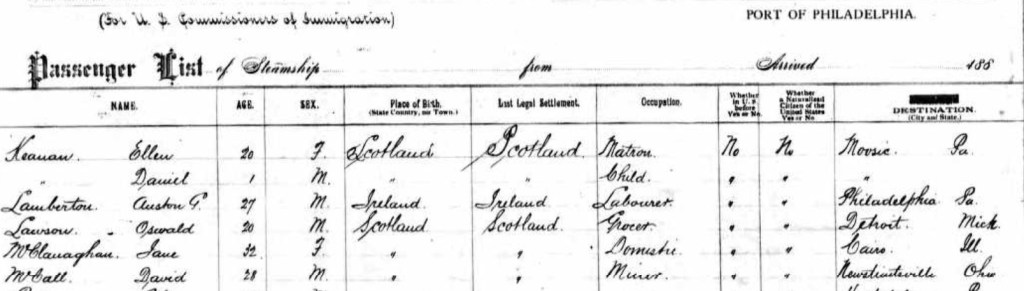 (For U. S. Commissioners of Immigration)
PORT OF PHILADELPHIA.
Passenger List of Steamship from Arrived 188
NAME. AGE. SEX. Place of Birth. Last Legal Settlement. Occupation. Whether in U. S. before Yes or No. Whether a Naturalized Citizen of the United States Yes or No DESTINATION.
(State Country, no Town.) (City and State.)
Keanan. Ellen 20 F. Scotland Scotland. Matron. No No Moosic. Pa.
" Daniel 1 M. " " Child. " " "
Lamberton. Auston G. 27 M. Ireland. Ireland. Labourer. " " Philadelphia Pa.
Lawson. Oswald 20 M. Scotland Scotland. Grocer. " " Detroit. Mich.
McClanaghan. Jane 32 F. " " Domestic. " " Cairo. Ill.
McCall. David 28 M. " " Miner. " " Ohio